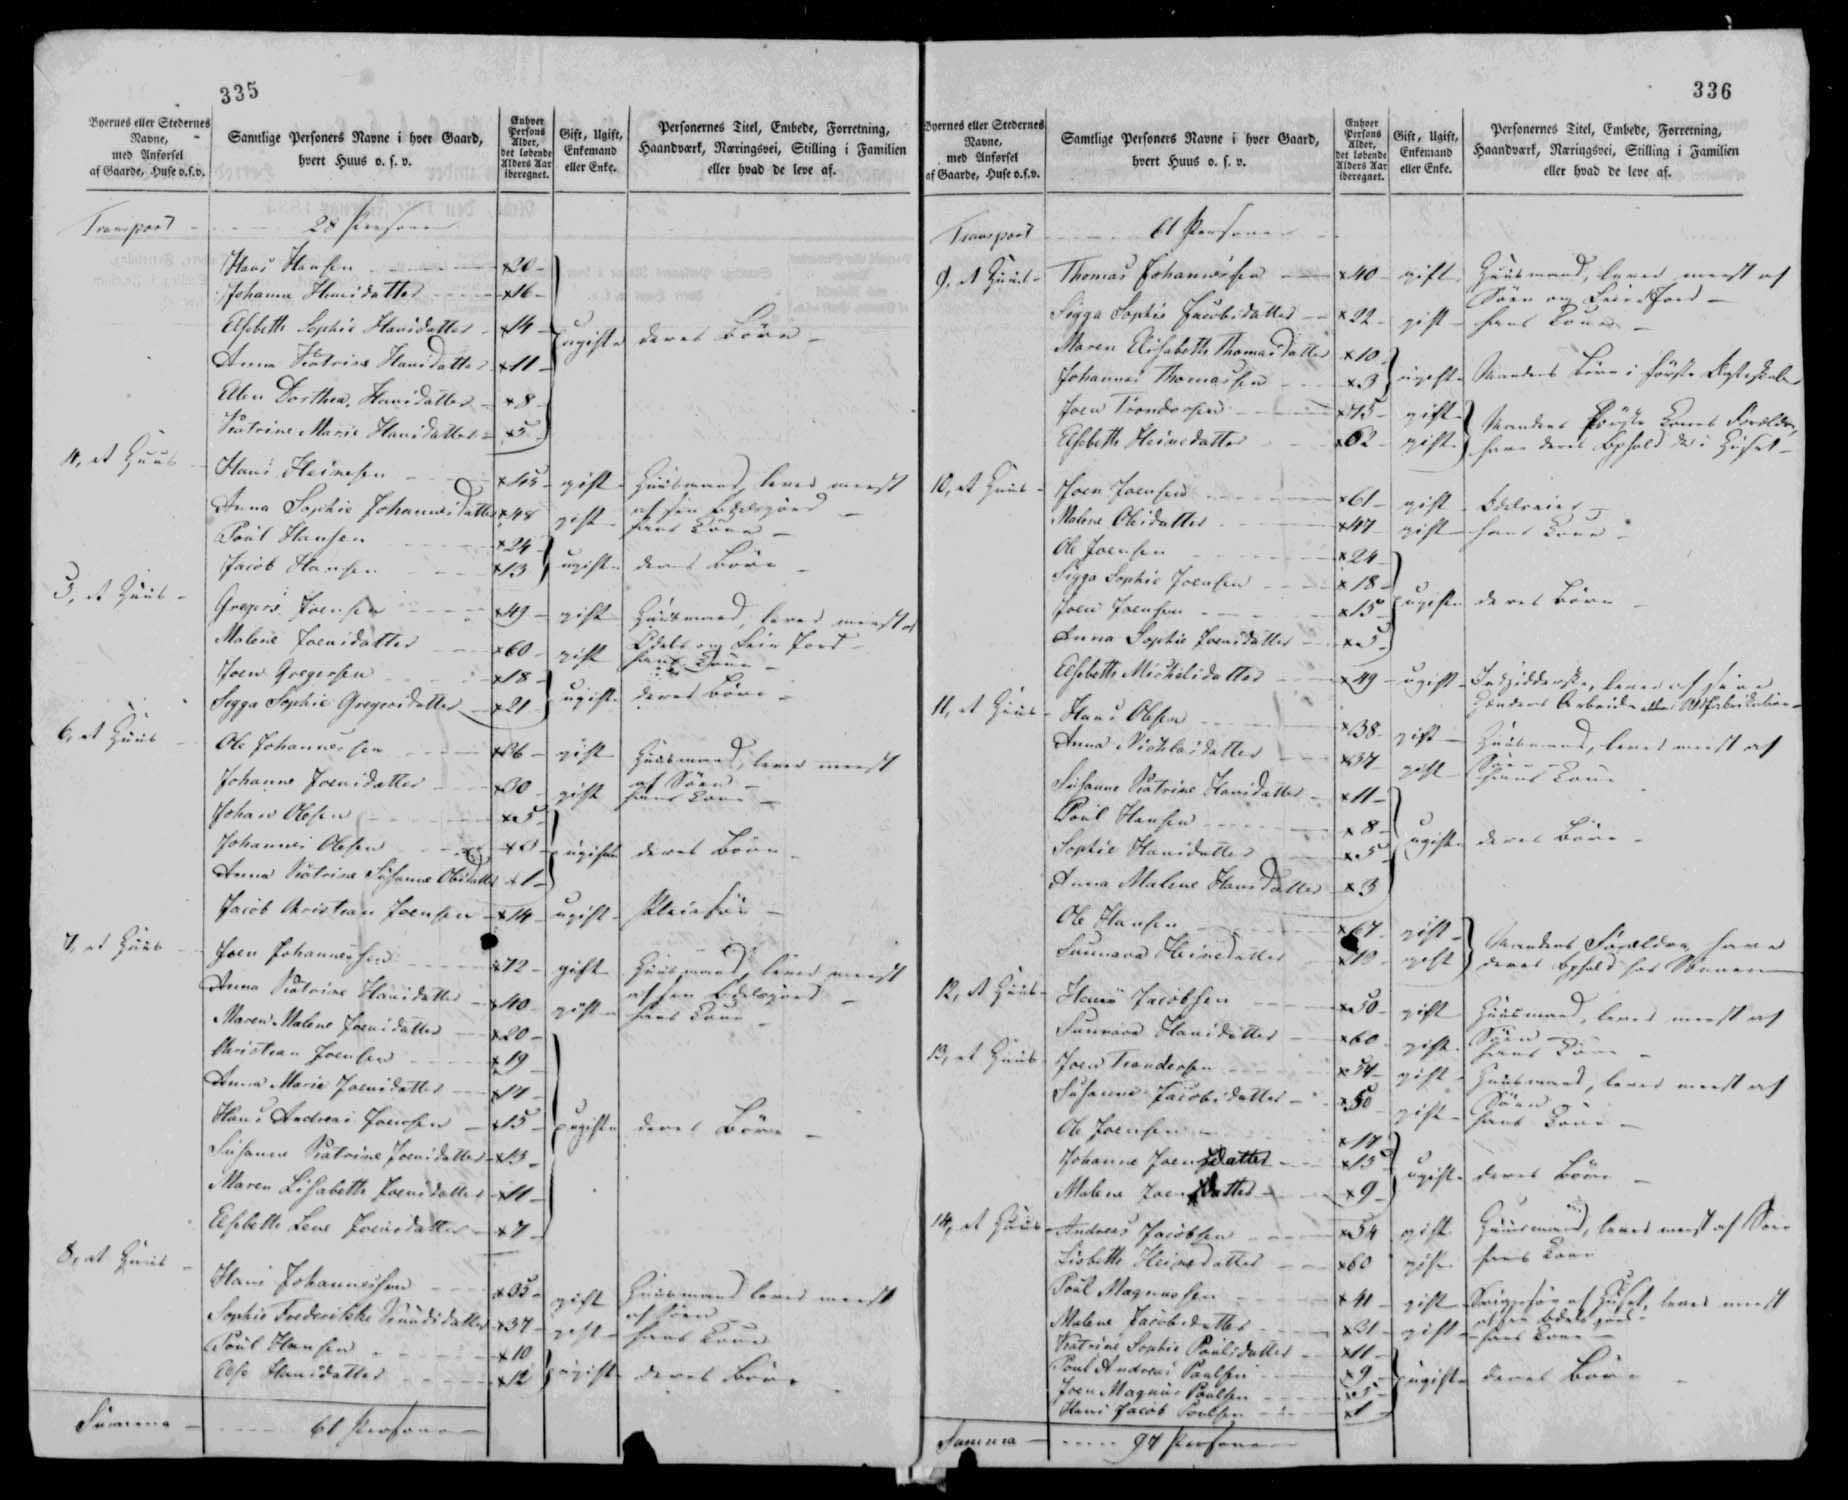 335
Byernes eller Stedernes Navne, med Anførsel af Gaarde, Huse o.s.v.
Samtlige Personers Navne i hver Gaard, hvert Huus o. s. v.
Enhver Persons Alder, det løbende Alders Aar iberegnet.
Gift, Ugift, Enkemand eller Enke.
Personernes Titel, Embede, Forretning, Haandværk, Næringsvei, Stilling i Familien eller hvad de leve af.
Transport - 28 Personer
Hans Hansen 20
Johanne Hansdatter 16
Elsbeth Sophie Hansdatter 14 ugifte deres Börn
Anna Katrine Hansdatter 11
Ellen Dorthea Hansdatter 8
Katrine Marie Hansdatter 5
4, et Huus Hans Heinesen 45 gift Huusmand, lever meest
af sin Odelsjord
Anna Sophie Johannesdatter 48 gift hans Kone
Poul Hansen 24 ugifte deres Börn
Jacob Hansen 13
5, et Huus Gregers Joensen 49 gift Huusmand, lever meest af
Odels og Leie Jord
Malene Joensdatter 60 gift hans Kone
Joen Gregersen 18 ugifte deres Börn
Sigga Sophie Gregersdatter 21
6, et Huus Ole Johannesen 36 gift Huusmand, lever meest
af Söen
Johanne Joensdatter 30 gift hans Kone
Johan Olesen 5
Johannes Olesen 3 ugifte deres Börn
Anna Katrine Susanne Olesdatter 1
Jacob Christian Joensen 14 ugift Pleiesön
7, et Huus Joen Johannesen 72 gift Huusmand, lever meest
af sin Odelsjord
Anna Katrine Hansdatter 40 gift hans Kone
Maren Malene Joensdatter 20
Christian Joensen 19
Anna Marie Joensdatter 17
Hans Andreas Joensen 15 ugifte deres Börn
Susanne Katrine Joensdatter 13
Maren Lisabeth Joensdatter 11
Elsbeth Lene Joensdatter 7
8, et Huus Hans Johannesen 35 gift Huusmand lever meest
af Söen
Sophie Frederikke 37 gift hans Kone
Poul Hansen 10 ugifte deres Börn
Else Hansdatter 12
Summa 61 Personer
336
Byernes eller Stedernes Navne, med Anførsel af Gaarde, Huse o.s.v.
Samtlige Personers Navne i hver Gaard, hvert Huus o. s. v.
Enhver Persons Alder, det løbende Alders Aar iberegnet.
Gift, Ugift, Enkemand eller Enke.
Personernes Titel, Embede, Forretning, Haandværk, Næringsvei, Stilling i Familien eller hvad de leve af.
Transport 61 Personer
9, et Huus Thomas Johannesen 40 gift Huusmand, lever meest af
Söen og Leie Jord
Sigga Sophie Jacobsdatter 22 gift hans Kone
Maren Elisabeth Thomasdatter 10 ugifte Mandens Börn i förste Ægteskab
Johannes Thomassen 3
Joen Trondersen 75 gift Mandens förste Kones Forældre,
Elsbeth Heinesdatter 62 gift have deres Ophold i Huset
10, et Huus Joen Joensen 61 gift Odelseier
Malene Olesdatter 47 gift hans Kone
Ole Joensen 24
Sigga Sophie Joensen 18
Joen Joensen 15 ugifte deres Börn
Anna Sophie Joensdatter 5
Elsbeth Michelsdatter 49 ugift Indsidderske, lever af sine
Hænders Arbeide
11, et Huus Hans Olesen 38 gift Huusmand, lever meest af
Söen
Anna Nicklasdatter 37 gift hans Kone
Susanne Katrine Hansdatter 11
Poul Hansen 8 ugifte deres Börn
Sophie Hansdatter 5
Anna Malene Hansdatter 3
Ole Hansen 67 gift Mandens Forældre, have
Sunnava Heinesdatter gift deres Ophold hos Sönnen
12, et Huus Jacobsen 50 gift Huusmand, lever meest af
Söen
Sunnava Hansdatter 60 gift hans Kone
13, et Huus Joen Trondersen 54 gift Huusmand, lever meest af
Söen
Susanne Jacobsdatter 50 gift hans Kone
Ole Joensen 17
Johanne Joensdatter 13 ugifte deres Börn
Malene Joensdatter 9
14, et Huus Andreas Jacobsen 54 gift Huusmand, lever meest af Söen
Lisbeth Heinesdatter 60 gift hans Kone
Poul Magnussen 41 gift lever meest
af sin Odelsjord
Malene Jacobsdatter 31 gift hans Kone
Katrine Sophie Poulsdatter 11
Poul Andreas Poulsen 9 ugifte deres Börn
Joen Magnus Poulsen 5
Hans Jacob Poulsen 1
Summa 97 Personer